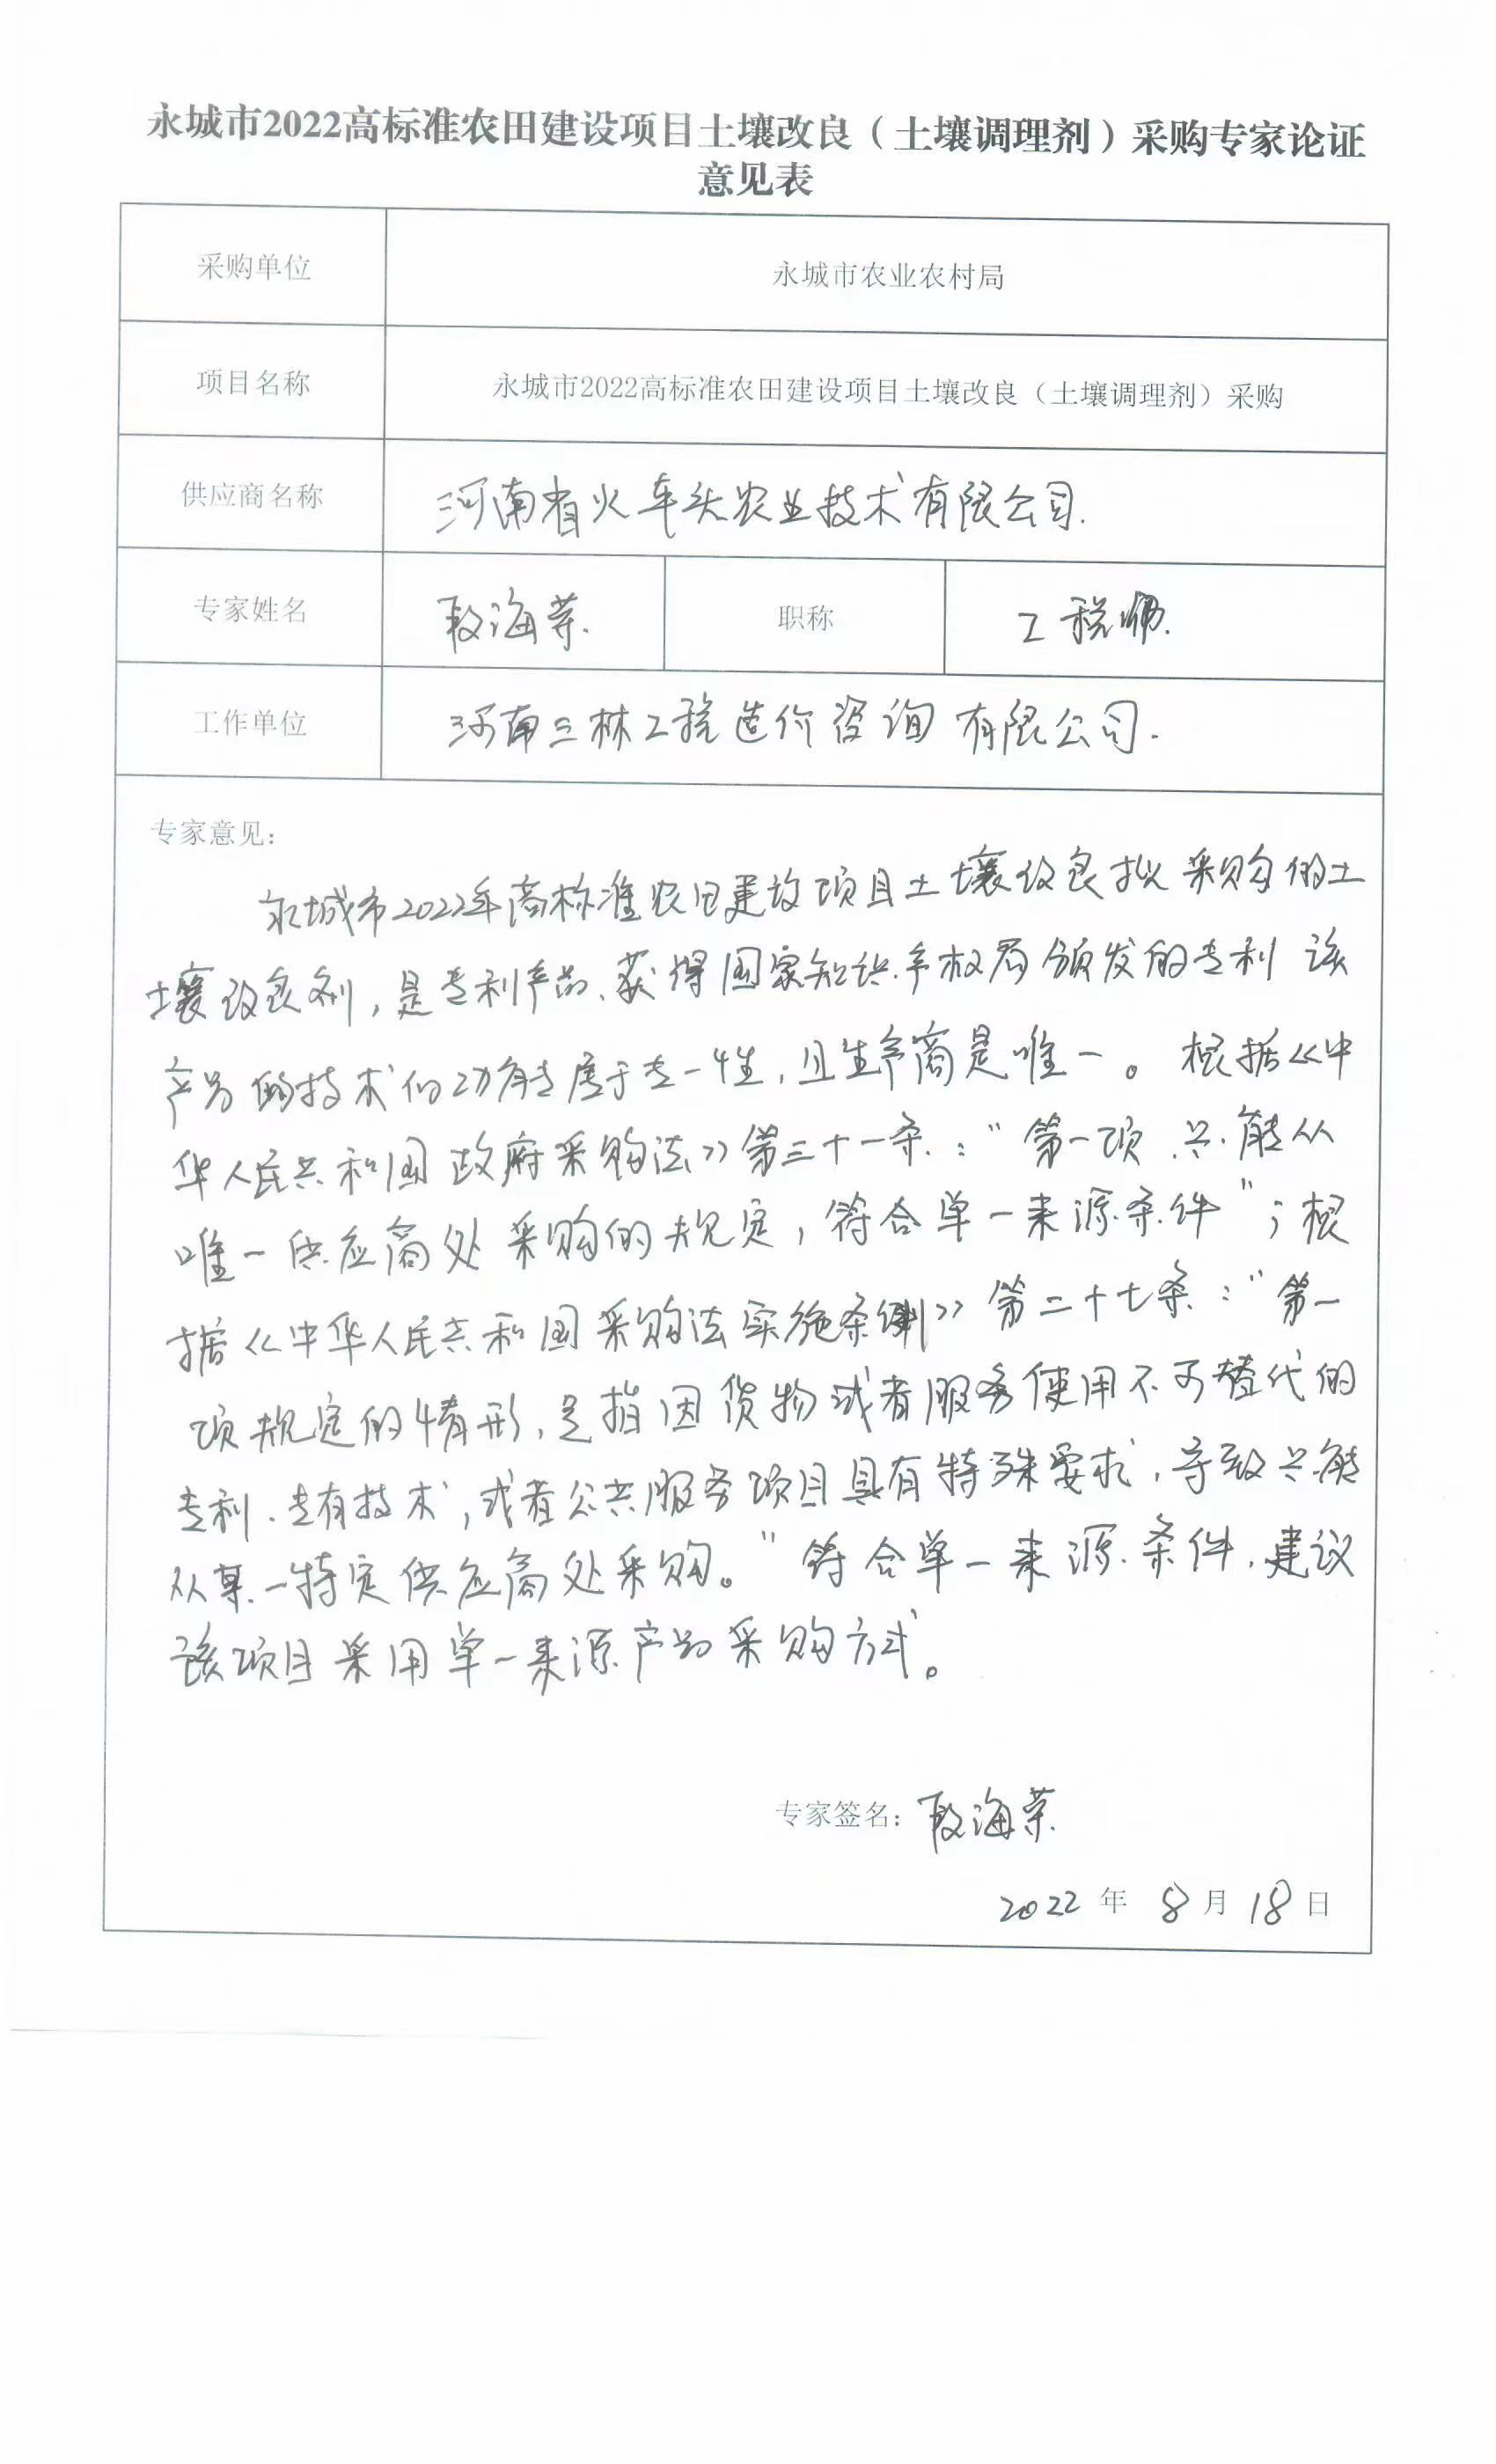 永城市2022高标准农田建设项目土壤改良（土壤调理剂）采购专家论证
意见表
采购单位 永城市农业农村局
项目名称 永城市2022高标准农田建设项目土壤改良（土壤调理剂）采购
供应商名称 河南省火车头农业技术有限公司.
专家姓名 殷海荣. 职称 工程师.
工作单位 河南三林工程造价咨询有限公司.
专家意见：
永城市2022年高标准农田建设项目土壤改良拟采购的土
壤改良剂，是专利产品、获得国家知识产权局颁发的专利 该
产品的技术的功能属于专一性，且生产商是唯一。根据《中
华人民共和国政府采购法》第三十一条：“第一项、只能从
唯一供应商处采购的规定，符合单一来源条件”；根
据《中华人民共和国采购法实施条例》第二十七条：“第一
项规定的情形，是指因货物或者服务使用不可替代的
专利、专有技术，或者公共服务项目具有特殊要求，导致只能
从某一特定供应商处采购。”符合单一来源条件，建议
该项目采用单一来源产品采购方式。
专家签名：殷海荣.
2022 年 8 月 18 日